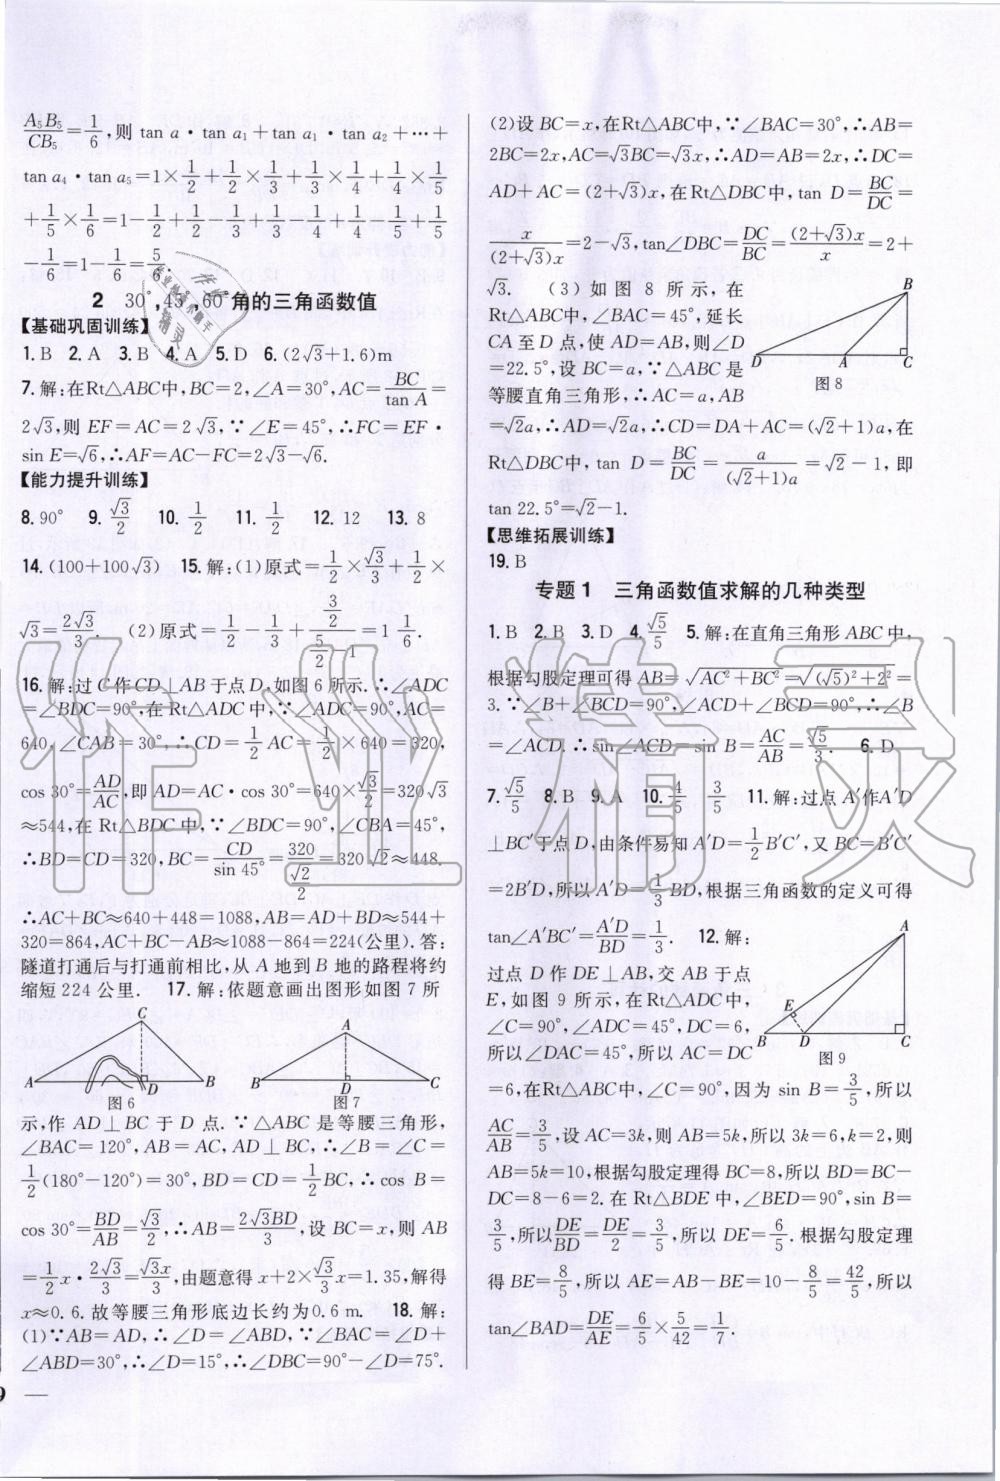 A₅B₅/CB₅=1/6,则 tan a·tan a₁+tan a₁·tan a₂+⋯+
tan a₄·tan a₅=1×1/2+1/2×1/3+1/3×1/4+1/4×1/5
+1/5×1/6=1-1/2+1/2-1/3+1/3-1/4+1/4-1/5+1/5
-1/6=1-1/6=5/6.
2 30°,45°,60°角的三角函数值
【基础巩固训练】
1.B 2.A 3.B 4.A 5.D 6.(2√3+1.6)m
7.解:在Rt△ABC中,BC=2,∠A=30°,AC=BC/tan A=
2√3,则 EF=AC=2√3,∵∠E=45°,∴FC=EF·
sin E=√6,∴AF=AC-FC=2√3-√6.
【能力提升训练】
8.90° 9.√3/2 10.1/2 11.1/2 12.12 13.8
14.(100+100√3) 15.解:(1)原式=1/2×√3/3+1/2×
√3=2√3/3. (2)原式=1/2-1/3+(3/2)/(5/2-1)=1 1/6.
16.解:过C作CD⊥AB于点D,如图6所示.∴∠ADC
=∠BDC=90°,在Rt△ADC中,∵∠ADC=90°,AC=
640,∠CAB=30°,∴CD=1/2 AC=1/2×640=320,
cos 30°=AD/AC,即AD=AC·cos 30°=640×√3/2=320√3
≈544,在Rt△BDC中,∵∠BDC=90°,∠CBA=45°,
∴BD=CD=320,BC=CD/sin 45°=320/(√2/2)=320√2≈448.
∴AC+BC≈640+448=1088,AB=AD+BD≈544+
320=864,AC+BC-AB≈1088-864=224(公里).答:
隧道打通后与打通前相比,从A地到B地的路程将约
缩短224公里. 17.解:依题意画出图形如图7所
C
A D B
图6
A
B D C
图7
示,作 AD⊥BC 于 D 点.∵△ABC 是等腰三角形,
∠BAC=120°,AB=AC,AD⊥BC,∴∠B=∠C=
1/2(180°-120°)=30°,BD=CD=1/2BC,∴cos B=
cos 30°=BD/AB=√3/2,∴AB=2√3BD/3,设BC=x,则AB
=1/2x·2√3/3=√3x/3,由题意得x+2×√3/3x=1.35,解得
x≈0.6.故等腰三角形底边长约为0.6 m. 18.解:
(1)∵AB=AD,∴∠D=∠ABD,∵∠BAC=∠D+
∠ABD=30°,∴∠D=15°,∴∠DBC=90°-∠D=75°.
9 —
(2)设BC=x,在Rt△ABC中,∵∠BAC=30°,∴AB=
2BC=2x,AC=√3BC=√3x,∴AD=AB=2x,∴DC=
AD+AC=(2+√3)x,在Rt△DBC中,tan D=BC/DC=
x/(2+√3)x=2-√3,tan∠DBC=DC/BC=(2+√3)x/x=2+
√3. (3)如图8所示,在
Rt△ABC中,∠BAC=45°,延长
CA至D点,使AD=AB,则∠D
=22.5°,设BC=a,∵△ABC是
等腰直角三角形,∴AC=a,AB
B
D A C
图8
=√2a,∴AD=√2a,∴CD=DA+AC=(√2+1)a,在
Rt△DBC中,tan D=BC/DC=a/(√2+1)a=√2-1,即
tan 22.5°=√2-1.
【思维拓展训练】
19.B
专题1 三角函数值求解的几种类型
1.B 2.B 3.D 4.√5/5 5.解:在直角三角形ABC中,
根据勾股定理可得AB=√AC²+BC²=√(√5)²+2²=
3.∵∠B+∠BCD=90°,∠ACD+∠BCD=90°,∴∠B
=∠ACD.∴sin∠ACD=sin B=AC/AB=√5/3. 6.D
7.√5/5 8.B 9.A 10.4/5 3/5 11.解:过点A′作A′D
⊥BC′于点D,由条件易知A′D=1/2B′C′,又BC=B′C′
=2B′D,所以A′D=1/3BD,根据三角函数的定义可得
tan∠A′BC′=A′D/BD=1/3. 12.解:
过点D作DE⊥AB,交AB于点
E,如图9所示,在Rt△ADC中,
∠C=90°,∠ADC=45°,DC=6,
所以∠DAC=45°,所以AC=DC
A
E
B D C
图9
=6,在Rt△ABC中,∠C=90°,因为sin B=3/5,所以
AC/AB=3/5,设AC=3k,则AB=5k,所以3k=6,k=2,则
AB=5k=10,根据勾股定理得BC=8,所以BD=BC-
DC=8-6=2.在Rt△BDE中,∠BED=90°,sin B=
3/5,所以DE/BD=DE/2=3/5,所以DE=6/5.根据勾股定理
得BE=8/5,所以AE=AB-BE=10-8/5=42/5,所以
tan∠BAD=DE/AE=6/5×5/42=1/7.
作业精灵